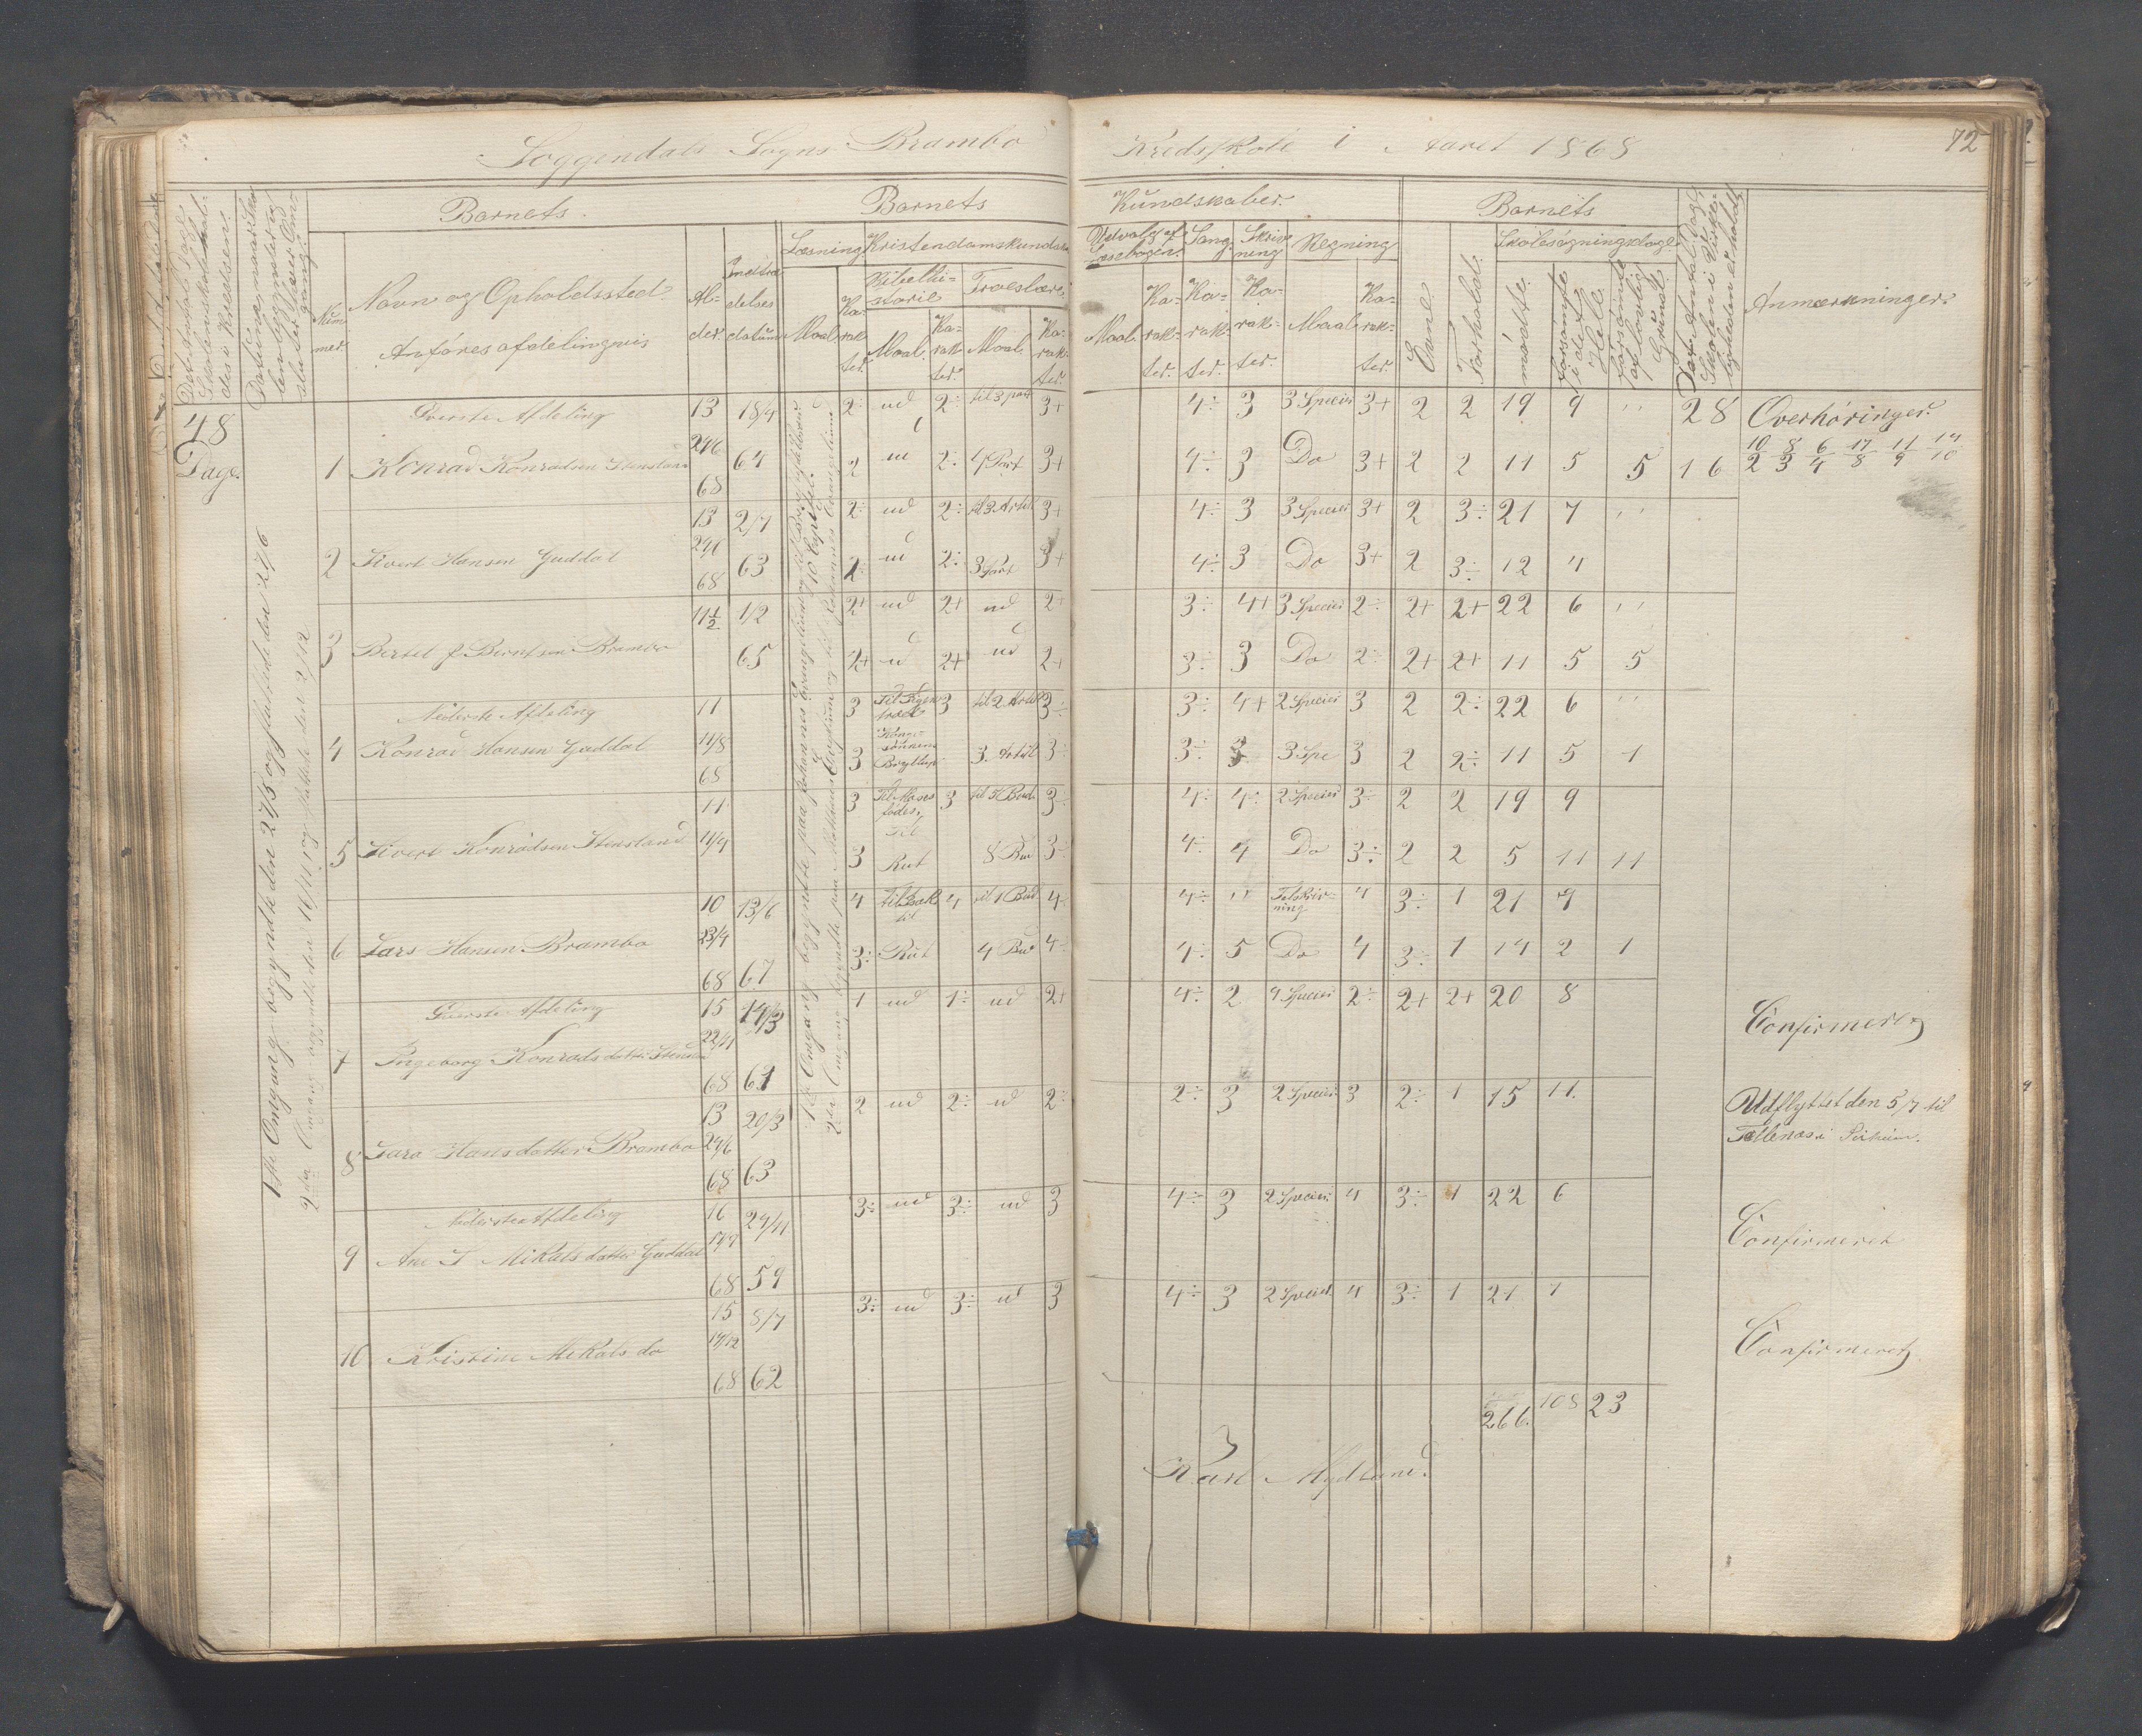 Soggendals Sogns Brambo Kredsskole i Aaret 1868
72
Barnets
Barnets
Kundskaber.
Barnets
Læsning
Kristendomskundskab
Udvalg af Læsebogen.
Sang
Skrivning
Regning
Skolesøgningsdage
Det Antal Dage Skolen skal holdes i Kredsen.
Nummer.
Navn og Opholdssted.
Anføres afdelingsvis
Alder.
Indtrædelsesdatum
Maal
Karakter.
Bibelhistorie
Troeslære
Maal.
Karakter.
Maal.
Karakter.
Maal.
Karakter.
Karakter.
Karakter.
Maal
Karakter.
Evne.
Forhold.
mødte.
forsømte i det Hele.
forsømte af lovlig Grund.
Anmærkninger.
48 Dage.
1ste Omgang begyndte den 27/5 og sluttede den 27/6
2den Omgang begyndte den 16/11 og sluttede den 2/12
Øverste Afdeling 13 18/4 2÷ ud 2÷ til 3 part 3+ 4÷ 3 3 Species 3+ 2 2 19 9 " 28 Overhøringer.
1 Konrad Konradsen Stensland 24/6 68 64 2 ud 2÷ 4 Part 3+ 4÷ 3 Do 3+ 2 2 11 5 5 16 10/2 8/3 6/4 17/8 11/9 14/10
13 2/7 2÷ ud 2÷ til 3 Artik 3+ 4÷ 3 3 Species 3+ 2 3÷ 21 7 "
2 Sivert Hansen Guddal 24/6 68 63 2÷ ud 2÷ 3 Part 3+ 4÷ 3 Do 3+ 2 3÷ 12 4
11½ 1/2 2+ ud 2+ ud 2+ 3÷ 4+ 3 Species 2÷ 2+ 2+ 22 6 "
3 Bertel J Berntsen Brambo 65 2+ ud 2+ ud 2+ 3÷ 3 Do 2÷ 2+ 2+ 11 5 5
Nederste Afdeling 11 3 3 til 2 Artik 3÷ 3÷ 4+ 2 Species 3 2 2÷ 22 6 "
4 Konrad Hansen Guddal 14/8 68 3 Konge sønnens Bryllup 3. Artik 3÷ 3÷ 3 3 Spe 3 2 2÷ 11 5 1
11 3 Til Moses fødes. 3 3÷ 4÷ 4÷ 2 Species 3÷ 2 2 19 9
5 Sivert Konradsen Stensland 14/9 3 Til Rut 8 Bud 3÷ 4÷ 4 Do 3÷ 2 2 5 11 11
10 13/6 4 til Isak 4 til 1 Bud 4÷ 4÷ " Talskrivning 4 3÷ 1 21 7
6 Lars Hansen Brambo 23/4 68 67 3÷ til Rut 4 Bud 4÷ 4÷ 5 Do 4 3÷ 1 14 2 1
Øverste Afdeling 15 14/3 1 ud 1÷ ud 2+ 4÷ 2 4 Species 2÷ 2+ 2+ 20 8
7 Ingeborg Konradsdatter Stensland 22/11 68 61 Confirmeret
13 20/3 2 ud 2÷ ud 2÷ 2÷ 3 2 Species 3 2÷ 1 15 11.
8 Sara Hansdatter Brambo 24/6 68 63 Udflyttet den 5/7 til
Nederste Afdeling 16 24/11 3÷ ud 3÷ ud 3 4÷ 3 2 Species 4 3÷ 1 22 6
9 Ane S Mikalsdatter Guddal 68 59 Confirmeret
15 8/7 3÷ ud 3÷ ud 3 4÷ 3 2 Species 4 3÷ 1 21 7
10 Kristine Mikals do 14/12 68 62 Confirmeret
266. 108 23
Karl Mydland.